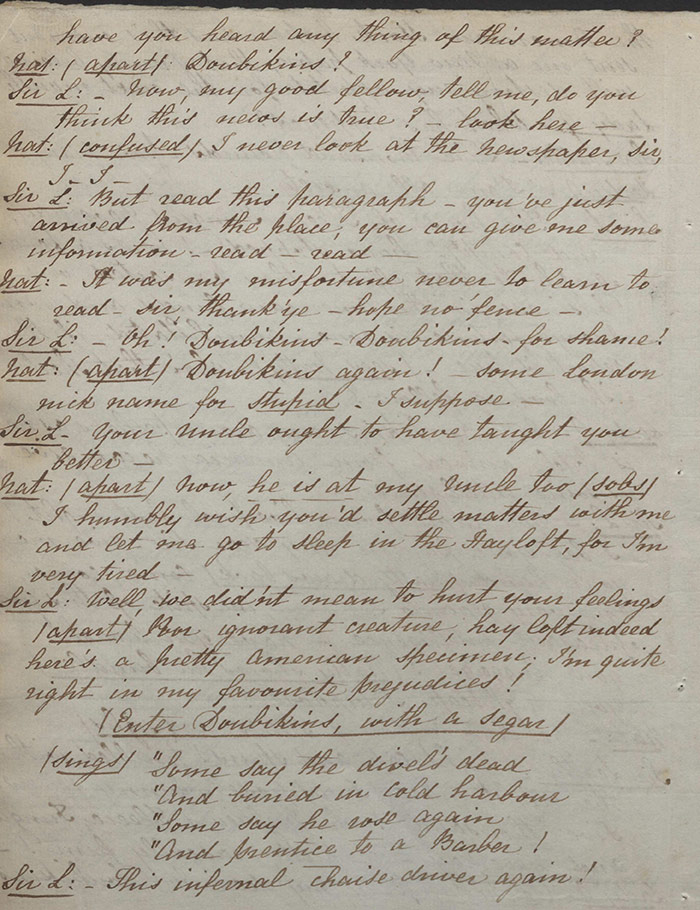 have you heard any thing of this matter?
Nat: (apart) Doubikins?
Sir L: - Now my good fellow, tell me, do you
think this news is true? - look here -
Nat: (confused) I never look at the Newspaper, sir,
I - I -
Sir L: But read this paragraph - you've just
arrived from the place, you can give me some
information - read - read -
Nat: - It was my misfortune never to learn to
read - sir, thank'ye - hope no 'fence -
Sir L: - Oh! Doubikins - Doubikins - for shame!
Nat: (apart) Doubikins again! - some London
nick name for stupid - I suppose -
Sir L - Your Uncle ought to have taught you
better -
Nat: (apart) Now, he is at my Uncle too (sobs)
I humbly wish you'd settle matters with me
and let me go to sleep in the Hayloft, for I'm
very tired -
Sir L: Well, we did'nt mean to hurt your feelings
(apart) Poor ignorant creature, hay loft indeed
here's a pretty American specimen; I'm quite
right in my favourite prejudices!
(Enter Doubikins, with a segar)
(sings) "Some say the divel's dead
"And buried in cold harbour
"Some say he rose again
"And prentice to a Barber!
Sir L: - This infernal chaise driver again!